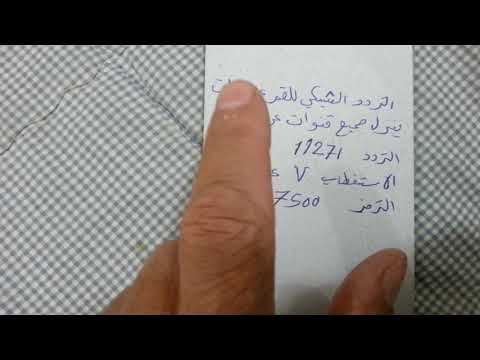 التردد الشبكي للقو
ينزل جميع قنوات
التردد 11271
الاستقطاب V
الترمز 7500